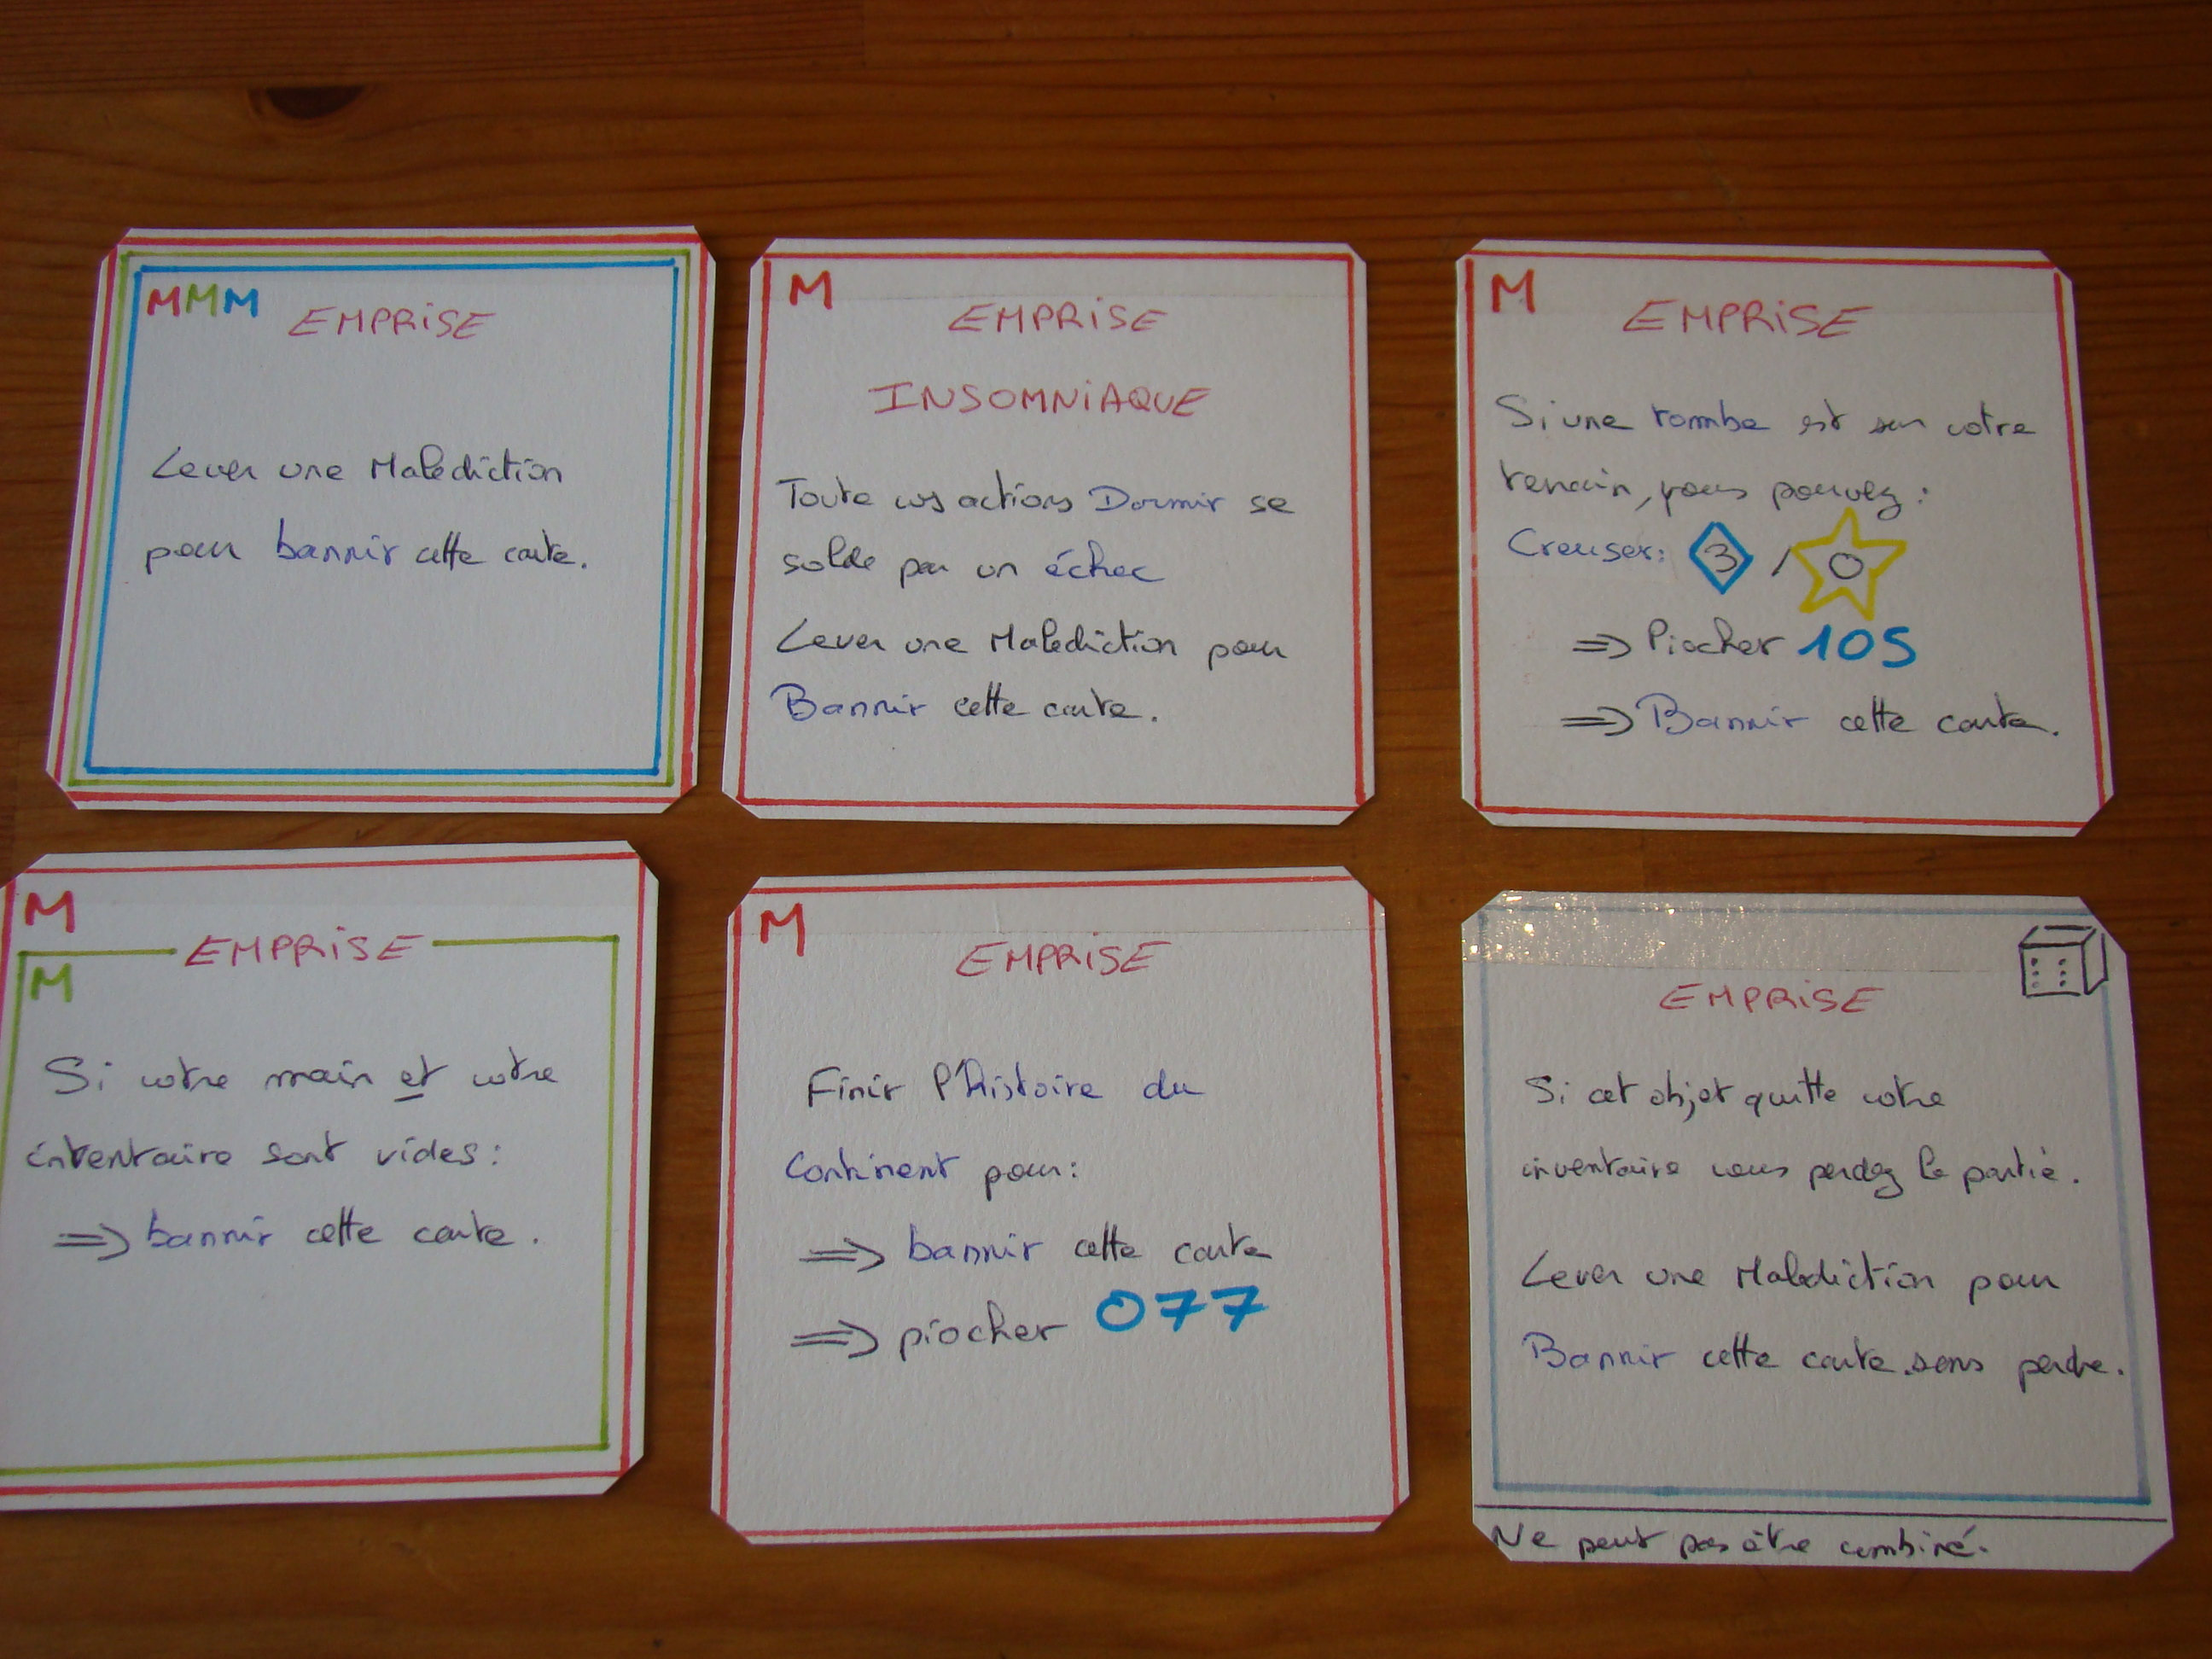 MMM
EMPRISE
Lever une Malediction
pour bannir cette carte.
M
EMPRISE
INSOMNIAQUE
Toute vos actions Dormir se
solde par un échec
Lever une Malediction pour
Bannir cette carte.
M
EMPRISE
Si une tombe est sur votre
terrain, vous pouvez :
Creuser: 3 / 0
=> Piocher 105
=> Bannir cette carte.
M
EMPRISE
M
Si votre main et votre
inventaire sont vides :
=> bannir cette carte.
M
EMPRISE
Finir l'histoire du
Continent pour :
=> bannir cette carte
=> piocher 077
EMPRISE
Si cet objet quitte votre
inventaire vous perdez la partie.
Lever une Malediction pour
Bannir cette carte sans perdre.
Ne peut pas être combiné.